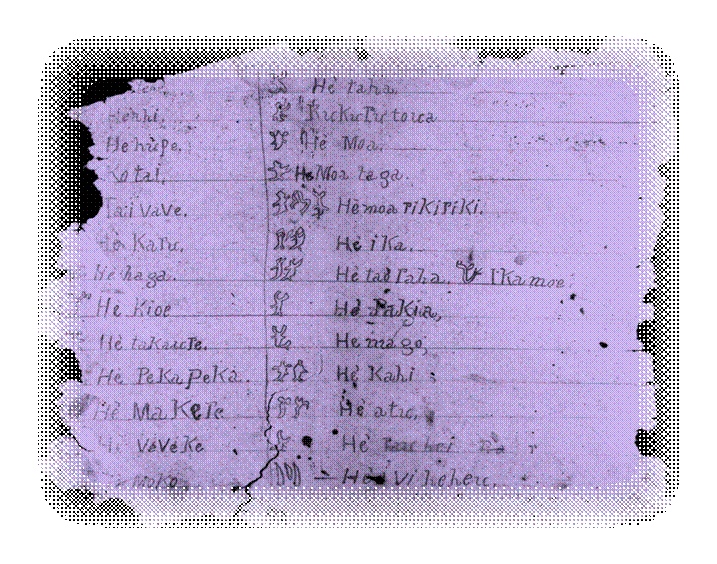 He taha.
Kukuru toua
He hupe. He Moa.
Ko tai. He Moa taga.
Tai vave. He moa rikiriki.
He Karu. He ika.
He haga. He tai raha. Ika moe.
He Kioe He Pakia,
He takaure. He mago,
He PeKa PeKa. He Kahi
He Ma KeTe He atu,
He VeVeKe He
He moko He Vi heheu.